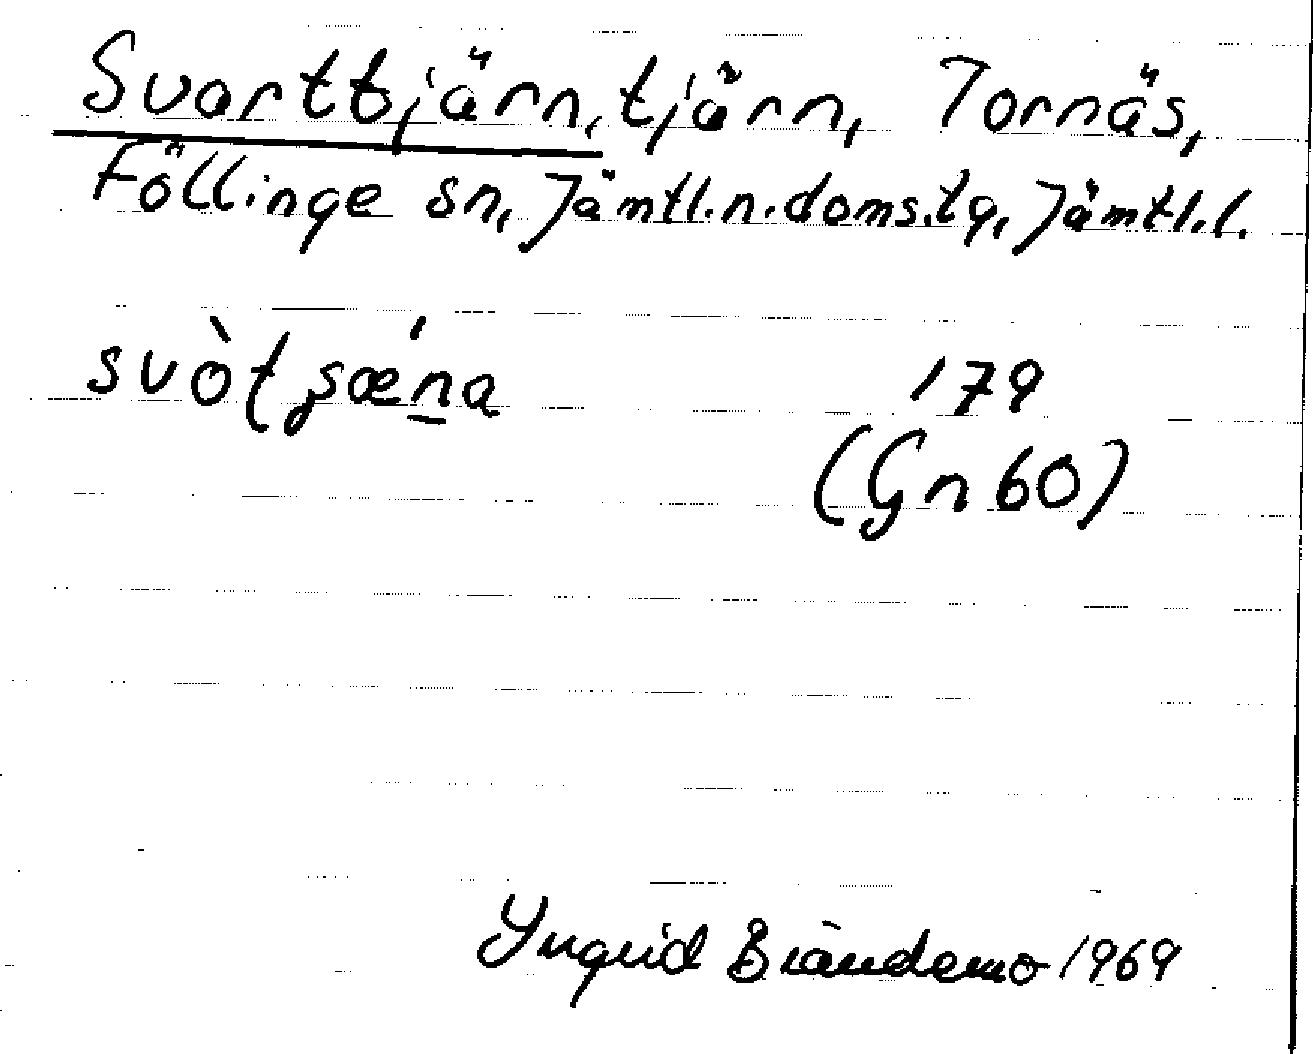 Svarttjärn, tjärn, Tornäs,
Föllinge sn, Jämtl.n.doms.tg, Jämtl.l.
svòtʂǽṉa 179
(Gn 60)
Yngvid Brändemo 1969